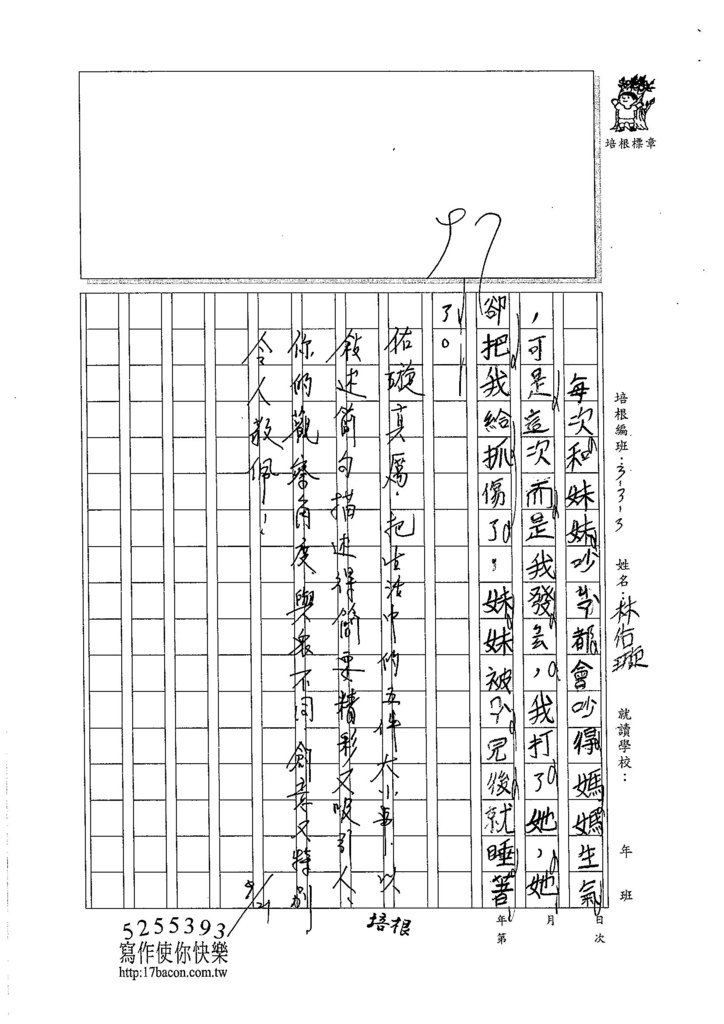 培根標章
培根編班：3-3-3 姓名：林佑璇 就讀學校： 年 班
97
每次和妹妹吵架都會吵得媽媽生氣
，可是這次而是我發，我打了她，她
卻把我給抓傷了，妹妹被完後就睡著
了。
佑璇真厲，把生活中的五件大小事，以
敘述簡句描述得簡要精彩又吸引人，
你的觀察角度與眾不同，創意又特別
令人敬佩！
9/21
年 月 日
第 次
培根
5255393
寫作使你快樂
http:17bacon.com.tw